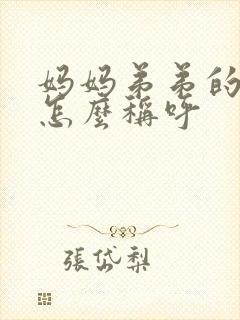 妈妈弟弟的
怎麼稱呼
張岱梨